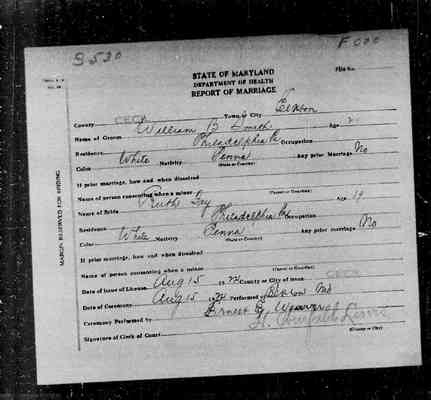 S530 F000
STATE OF MARYLAND
DEPARTMENT OF HEALTH
REPORT OF MARRIAGE
File No.
County CECIL Town or City Elkton
Name of Groom William B Smith Age
Residence Philadelphia Pa Occupation
Color White Nativity Penna Any prior Marriage No
(State or Country)
If prior marriage, how and when dissolved
Name of person consenting when a minor
(Parent or Guardian)
Name of Bride Ruth Age 19
Residence Philadelphia Pa Occupation
Color White Nativity Penna Any prior marriage No
(State or Country)
If prior marriage, how and when dissolved
Name of person consenting when a minor
(Parent or Guardian)
Date of Issue of License Aug 15 1924 County or City of Issue CECIL
Date of Ceremony Aug 15 1924 Performed at Elkton Md
Ceremony Performed by Ernest B
Signature of Clerk of Court
(County or City)
MARGIN RESERVED FOR BINDING